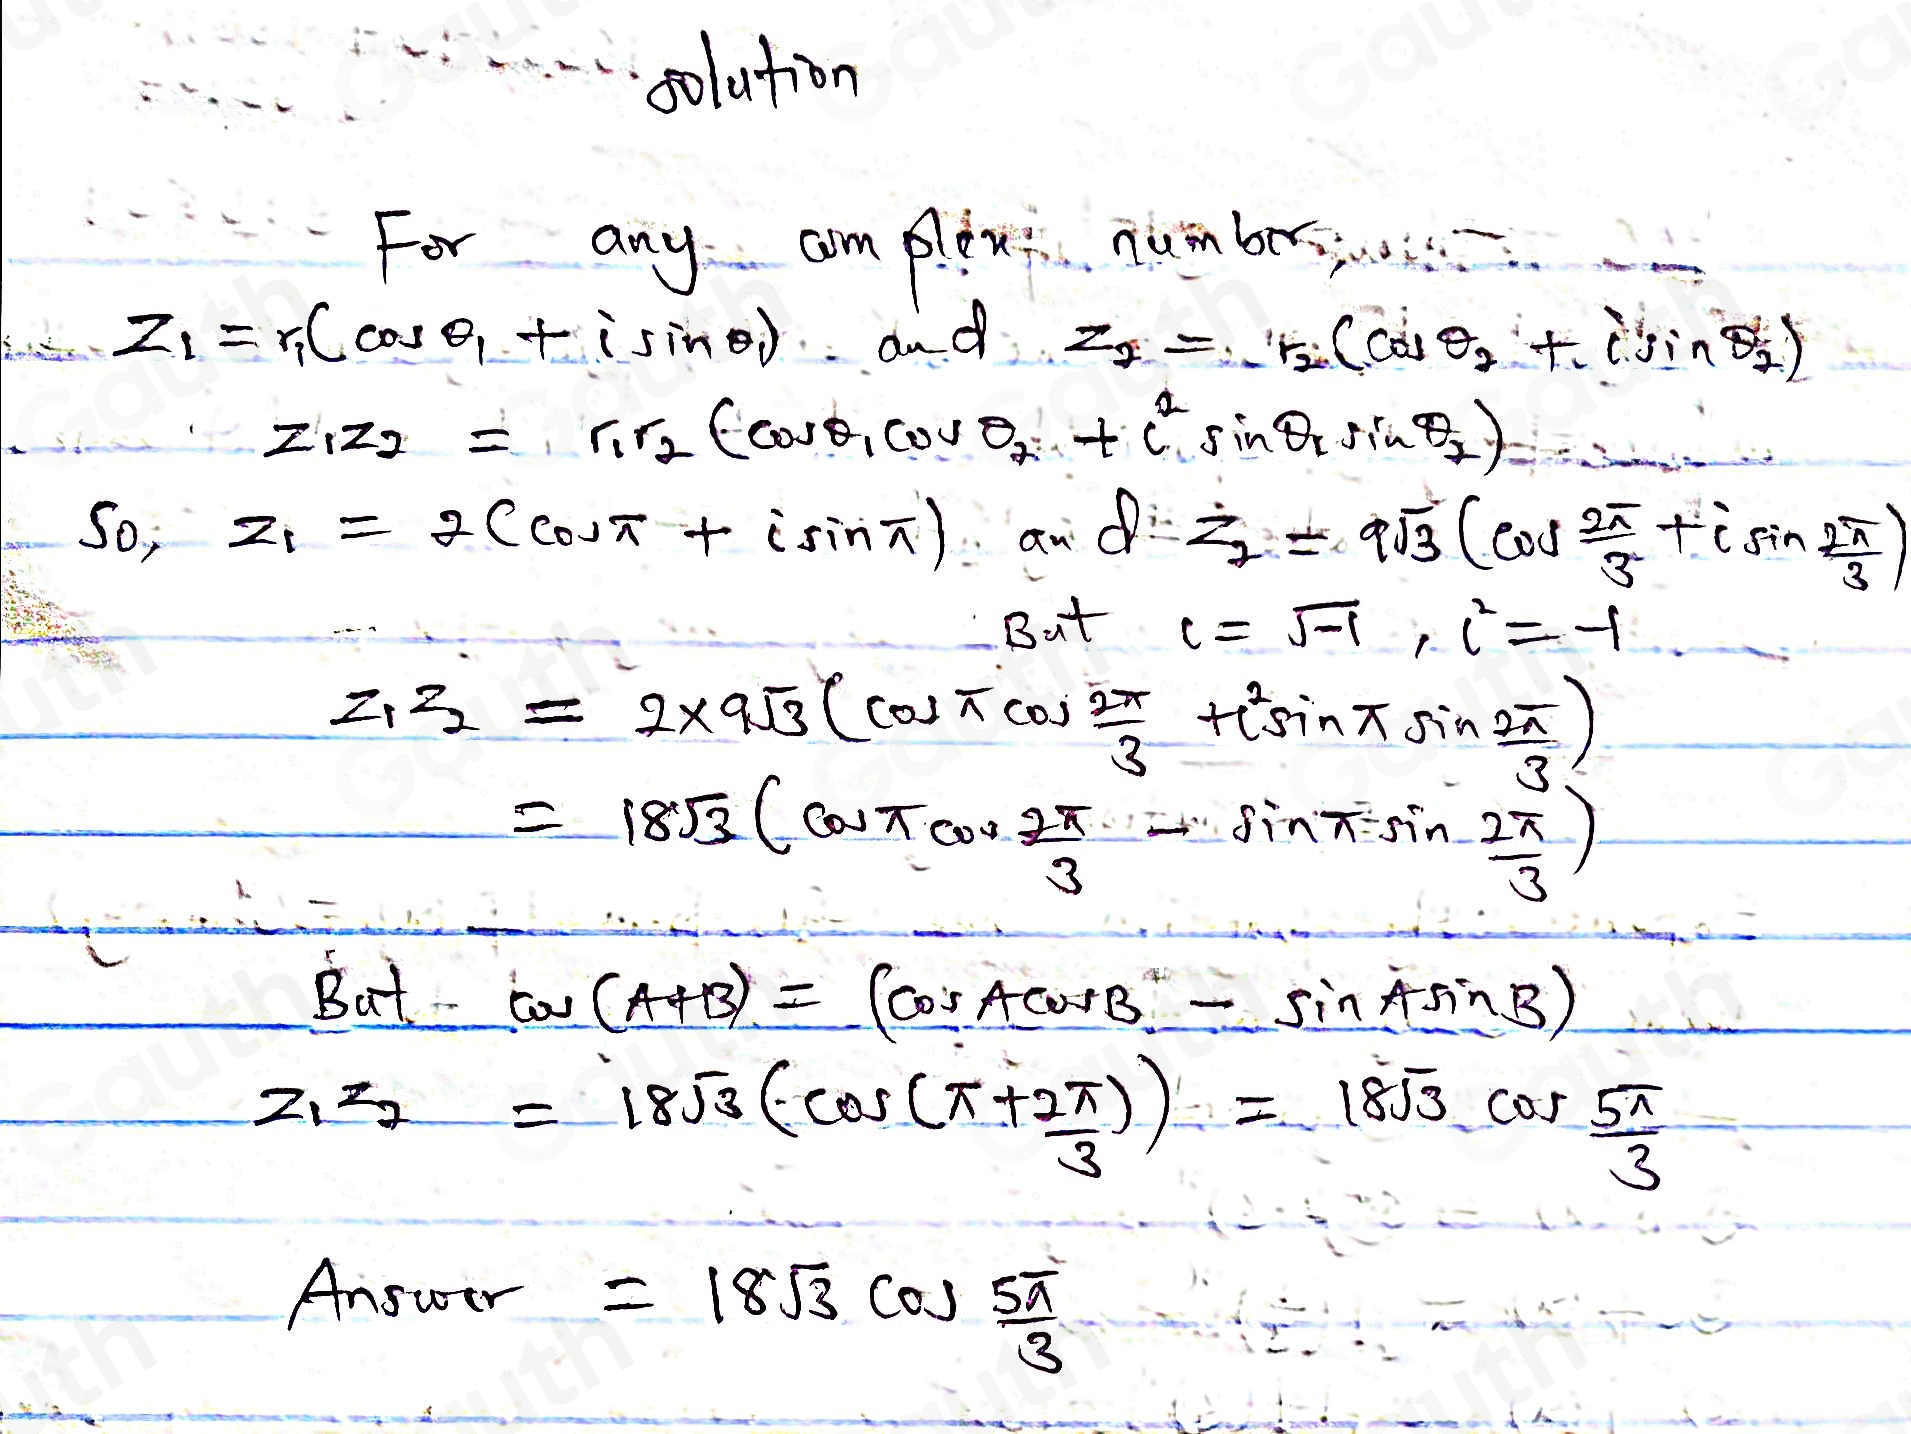 solution
For any complex number,
Z₁ = r₁(cosθ₁ + isinθ₁) and Z₂ = r₂(cosθ₂ + isinθ₂)
Z₁Z₂ = r₁r₂(cosθ₁cosθ₂ + i²sinθ₁sinθ₂)
So, Z₁ = 2(cosπ + isinπ) and Z₂ = 9√3(cos 2π/3 + isin 2π/3)
But i = √-1, i² = -1
Z₁Z₂ = 2×9√3(cosπcos 2π/3 + i²sinπsin 2π/3)
= 18√3(cosπcos 2π/3 - sinπsin 2π/3)
But cos(A+B) = (cosAcosB - sinAsinB)
Z₁Z₂ = 18√3(cos(π+2π/3)) = 18√3 cos 5π/3
Answer = 18√3 cos 5π/3